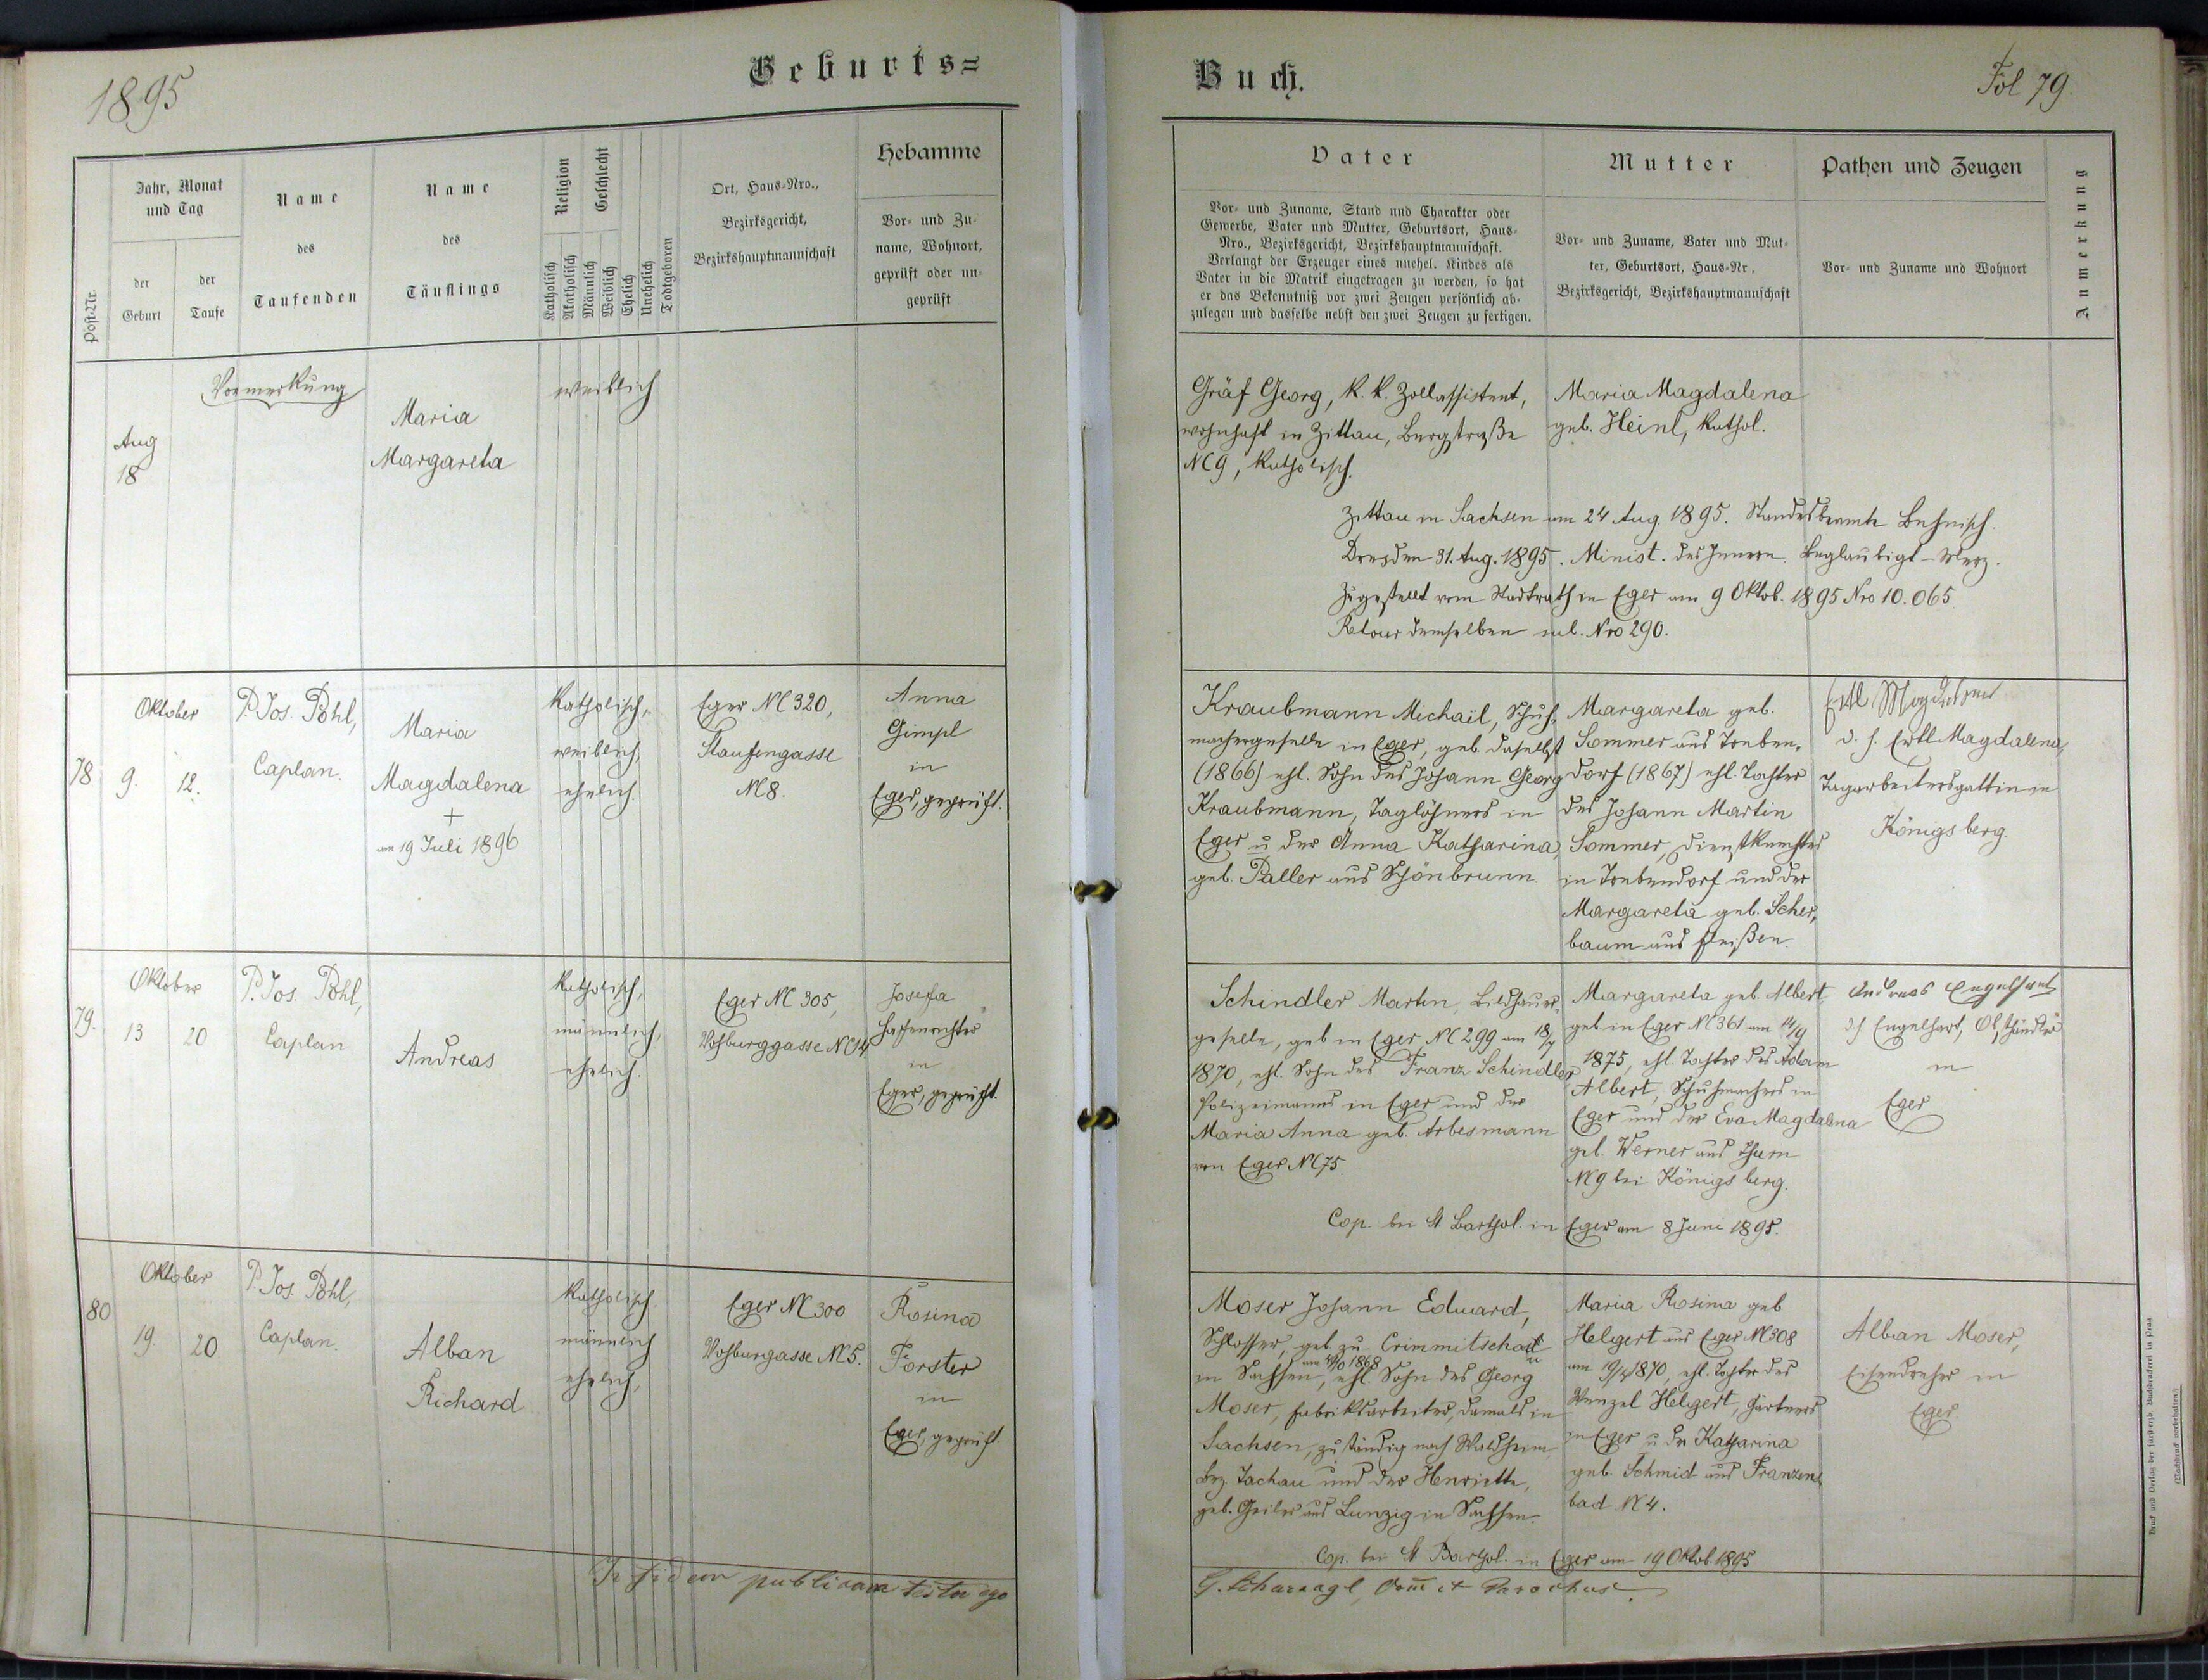 1895
Geburts=
Post-Nr.
Jahr, Monat
und Tag
der
Geburt
der
Taufe
Name
des
Taufenden
Name
des
Täuflings
Religion
Geschlecht
Katholisch
Akatholisch
Männlich
Weiblich
Ehelich
Unehelich
Todtgeboren
Ort, Haus-Nro.,
Bezirksgericht,
Bezirkshauptmannschaft
Hebamme
Vor- und Zu-
name, Wohnort,
geprüft oder un-
geprüft
Vormerkung
Aug
18
Maria
Margareta
weiblich
78
Oktober
9.
12.
P. Jos. Pohl,
Caplan.
Maria
Magdalena
+
am 19 Juli 1896
Katholisch,
weiblich,
ehelich.
Eger NC 320,
Staufengasse
N 8.
Anna
Gimpl
in
Eger, geprüft.
79.
Oktober
13
20
P. Jos. Pohl,
Caplan
Andreas
Katholisch,
männlich,
ehelich.
Eger NC 305,
Vohburggasse NC 14
Josefa
in
Eger, geprüft.
80
Oktober
19
20
P. Jos. Pohl,
Caplan.
Alban
Richard
Katholisch
männlich
ehelich,
Eger NC 300
Vohburgasse N 5.
Rosina
Forster
in
Eger, geprüft.
In fidem publicam testor ego
Buch.
Fol 79.
Vater
Vor- und Zuname, Stand und Charakter oder
Gewerbe, Vater und Mutter, Geburtsort, Haus-
Nro., Bezirksgericht, Bezirkshauptmannschaft.
Verlangt der Erzeuger eines unehel. Kindes als
Vater in die Matrik eingetragen zu werden, so hat
er das Bekenntniß vor zwei Zeugen persönlich ab-
zulegen und dasselbe nebst den zwei Zeugen zu fertigen.
Mutter
Vor- und Zuname, Vater und Mut-
ter, Geburtsort, Haus-Nr.,
Bezirksgericht, Bezirkshauptmannschaft
Pathen und Zeugen
Vor- und Zuname und Wohnort
Anmerkung
Gräf Georg, k. k. Zollassistent,
wohnhaft in Zittau, Bergstraße
NC 9, Katholisch.
Maria Magdalena
geb. Heinl, kathol.
Zittau in Sachsen am 24 Aug. 1895. Standesbeamte Behnisch.
Dresden 31. Aug. 1895. Minist. des Innern. Beglaubigt - Merz.
Zugestellt vom Stadtrath in Eger am 9 Oktob. 1895 Nro 10.065.
Retour demselben sub. Nro 290.
Kraubmann Michael, Schuh-
machergeselle in Eger, geb. daselbst
(1866) ehl. Sohn des Johann Georg
Kraubmann, Taglöhners in
Eger u der Anna Katharina,
geb. Paller aus Schönbrunn.
Margareta geb.
Sommer aus Treben-
dorf (1867) ehl. Tochter
des Johann Martin
Sommer, Dienstknechtes
in Trebendorf und der
Margareta geb. Scher-
baum aus Fleißen.
Ertl Magdalena
d. h. Ertl Magdalena,
Tagarbeitersgattin in
Königsberg.
Schindler Martin, Bildhauer-
geselle, geb in Eger NC 299 am 18/7
1870, ehl. Sohn des Franz Schindler
Polizeimanns in Eger und der
Maria Anna geb. Arbesmann
von Eger NC 75.
Margareta geb. Albert,
geb. in Eger NC 361 am 14/9
1875, ehl. Tochter des Adam
Albert, Schuhmachers in
Eger und der Eva Magdalena
geb. Werner aus Thurn
NC 9 bei Königsberg.
Andreas Engelhart
d. h Engelhart, Obsthändler
in
Eger
Cop. bei St Barthol. in Eger am 8 Juni 1895.
Moser Johann Eduard,
Schlosser, geb zu Crimmitschau
in Sachsen, ehl. Sohn des Georg
Moser, Fabriksarbeiter, damals in
Sachsen, zuständig nach Waldheim
Bez. Tachau und der Henriette,
geb. Geiler aus Lunzig in Sachsen.
Maria Rosina geb
Helgert aus Eger NC 308
am 19/4 1870, ehl. Tochter des
Wenzel Helgert, Gärtners
in Eger u der Katharina
geb. Schmid aus Franzens
bad N 4.
Alban Moser,
Eisendreher in
Eger
Cop. bei St Barthol. in Eger am 19 Oktob. 1895
Druck und Verlag der fürsterzb. Buchdruckerei in Prag
(Nachdruck vorbehalten.)